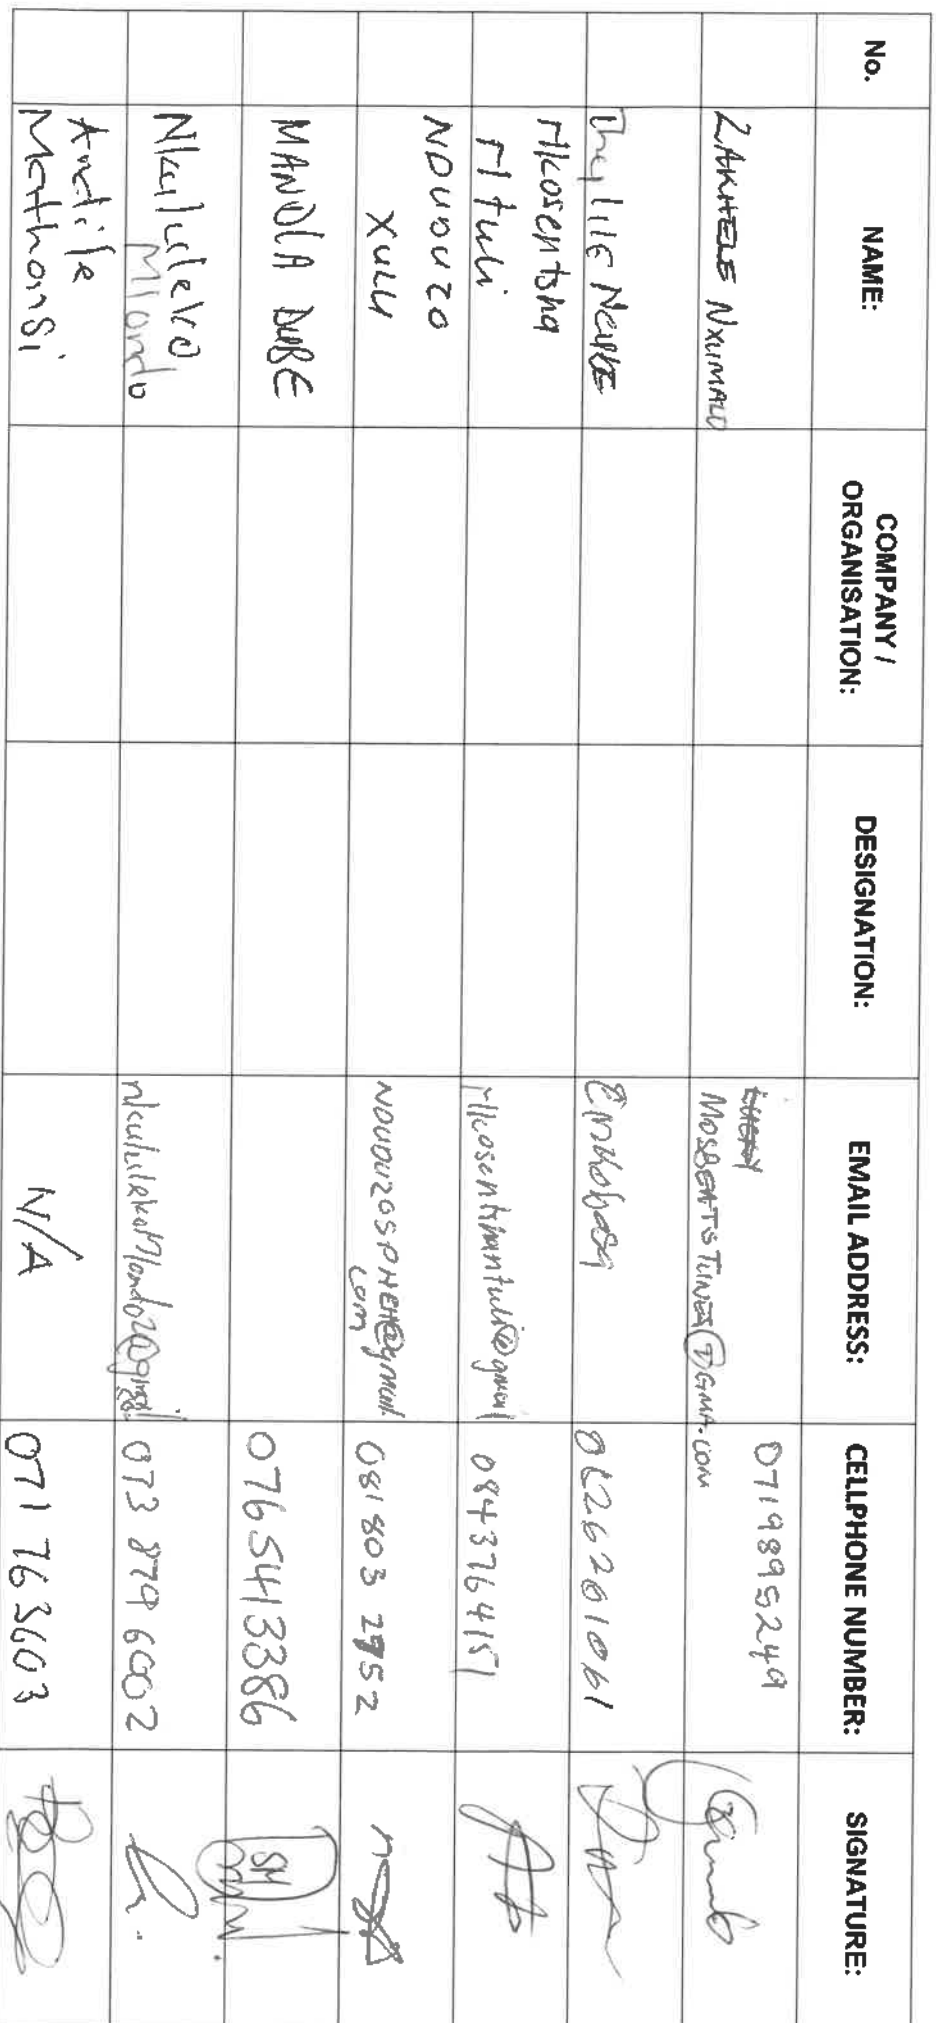 No. NAME: COMPANY / ORGANISATION: DESIGNATION: EMAIL ADDRESS: CELLPHONE NUMBER: SIGNATURE:
ZAKHELE NXUMALO MOSBEATSTUNES@GMA.COM 0719895249
NCUBE 0626261061
Nkosentsha Ntuli nkosentshantuli@gmail 0843764151
NDUDUZO XULU NDUDUZOSPHEH@gmail.com 081803 2952
MANDLA DUBE 0765413386
Nkululeko Mlondo nkululekoMlondo20@gmail 073 879 6002
Andile Mathonsi N/A 071 763603